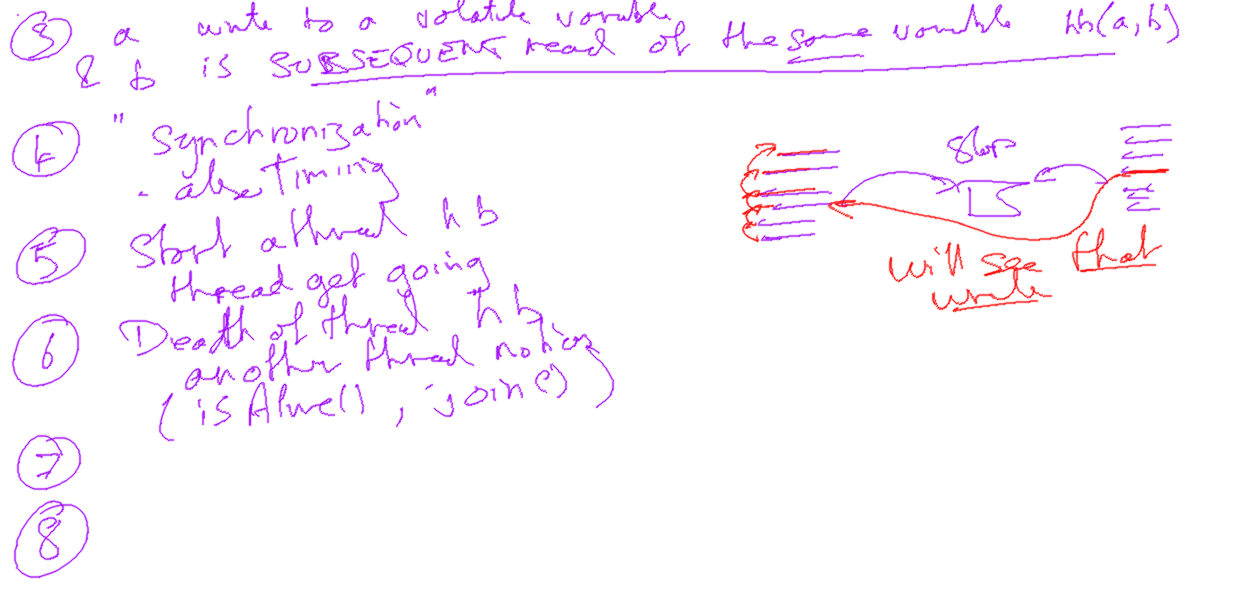 ③ a write to a volatile variable
& b is SUBSEQUENT read of the same variable hb(a,b)
④ "Synchronization"
- also Timing
⑤ Start a thread hb
thread get going
⑥ Death of thread hb
another thread notices
(isAlive(), join())
⑦
⑧
Stop
will see that
write